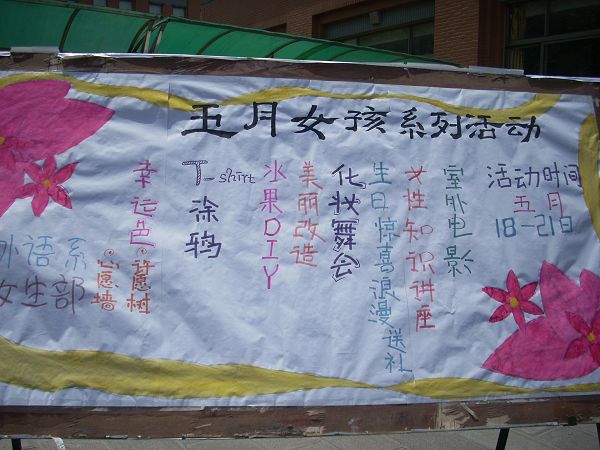 五月女孩系列活动
活动时间
五月
18-21日
室外电影
女性知识讲座
生日惊喜浪漫送礼
化妆舞会
美丽改造
水果DIY
T-shirt
涂鸦
幸运色。许愿树
心愿墙
外语系
女生部